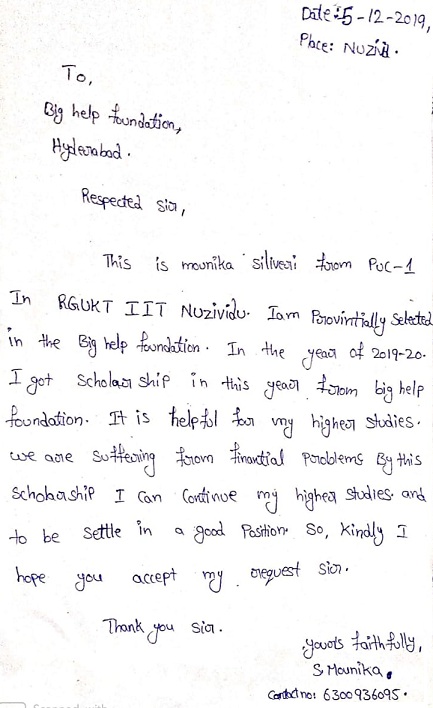 Date: 5-12-2019,
Place: Nuzivid.
To,
Big help foundation,
Hyderabad.
Respected sir,
This is mounika siliveri from PUC-1
In RGUKT IIT Nuzividu. Iam Provintially selected
in the Big help foundation. In the year of 2019-20.
I got scholar ship in this year from big help
foundation. It is helpful for my higher studies.
we are suffering from finantial problems By this
scholarship I can continue my higher studies and
to be settle in a good Position. So, kindly I
hope you accept my request sir.
Thank you sir.
yours faithfully,
S. Mounika.
Contact no: 6300936095.